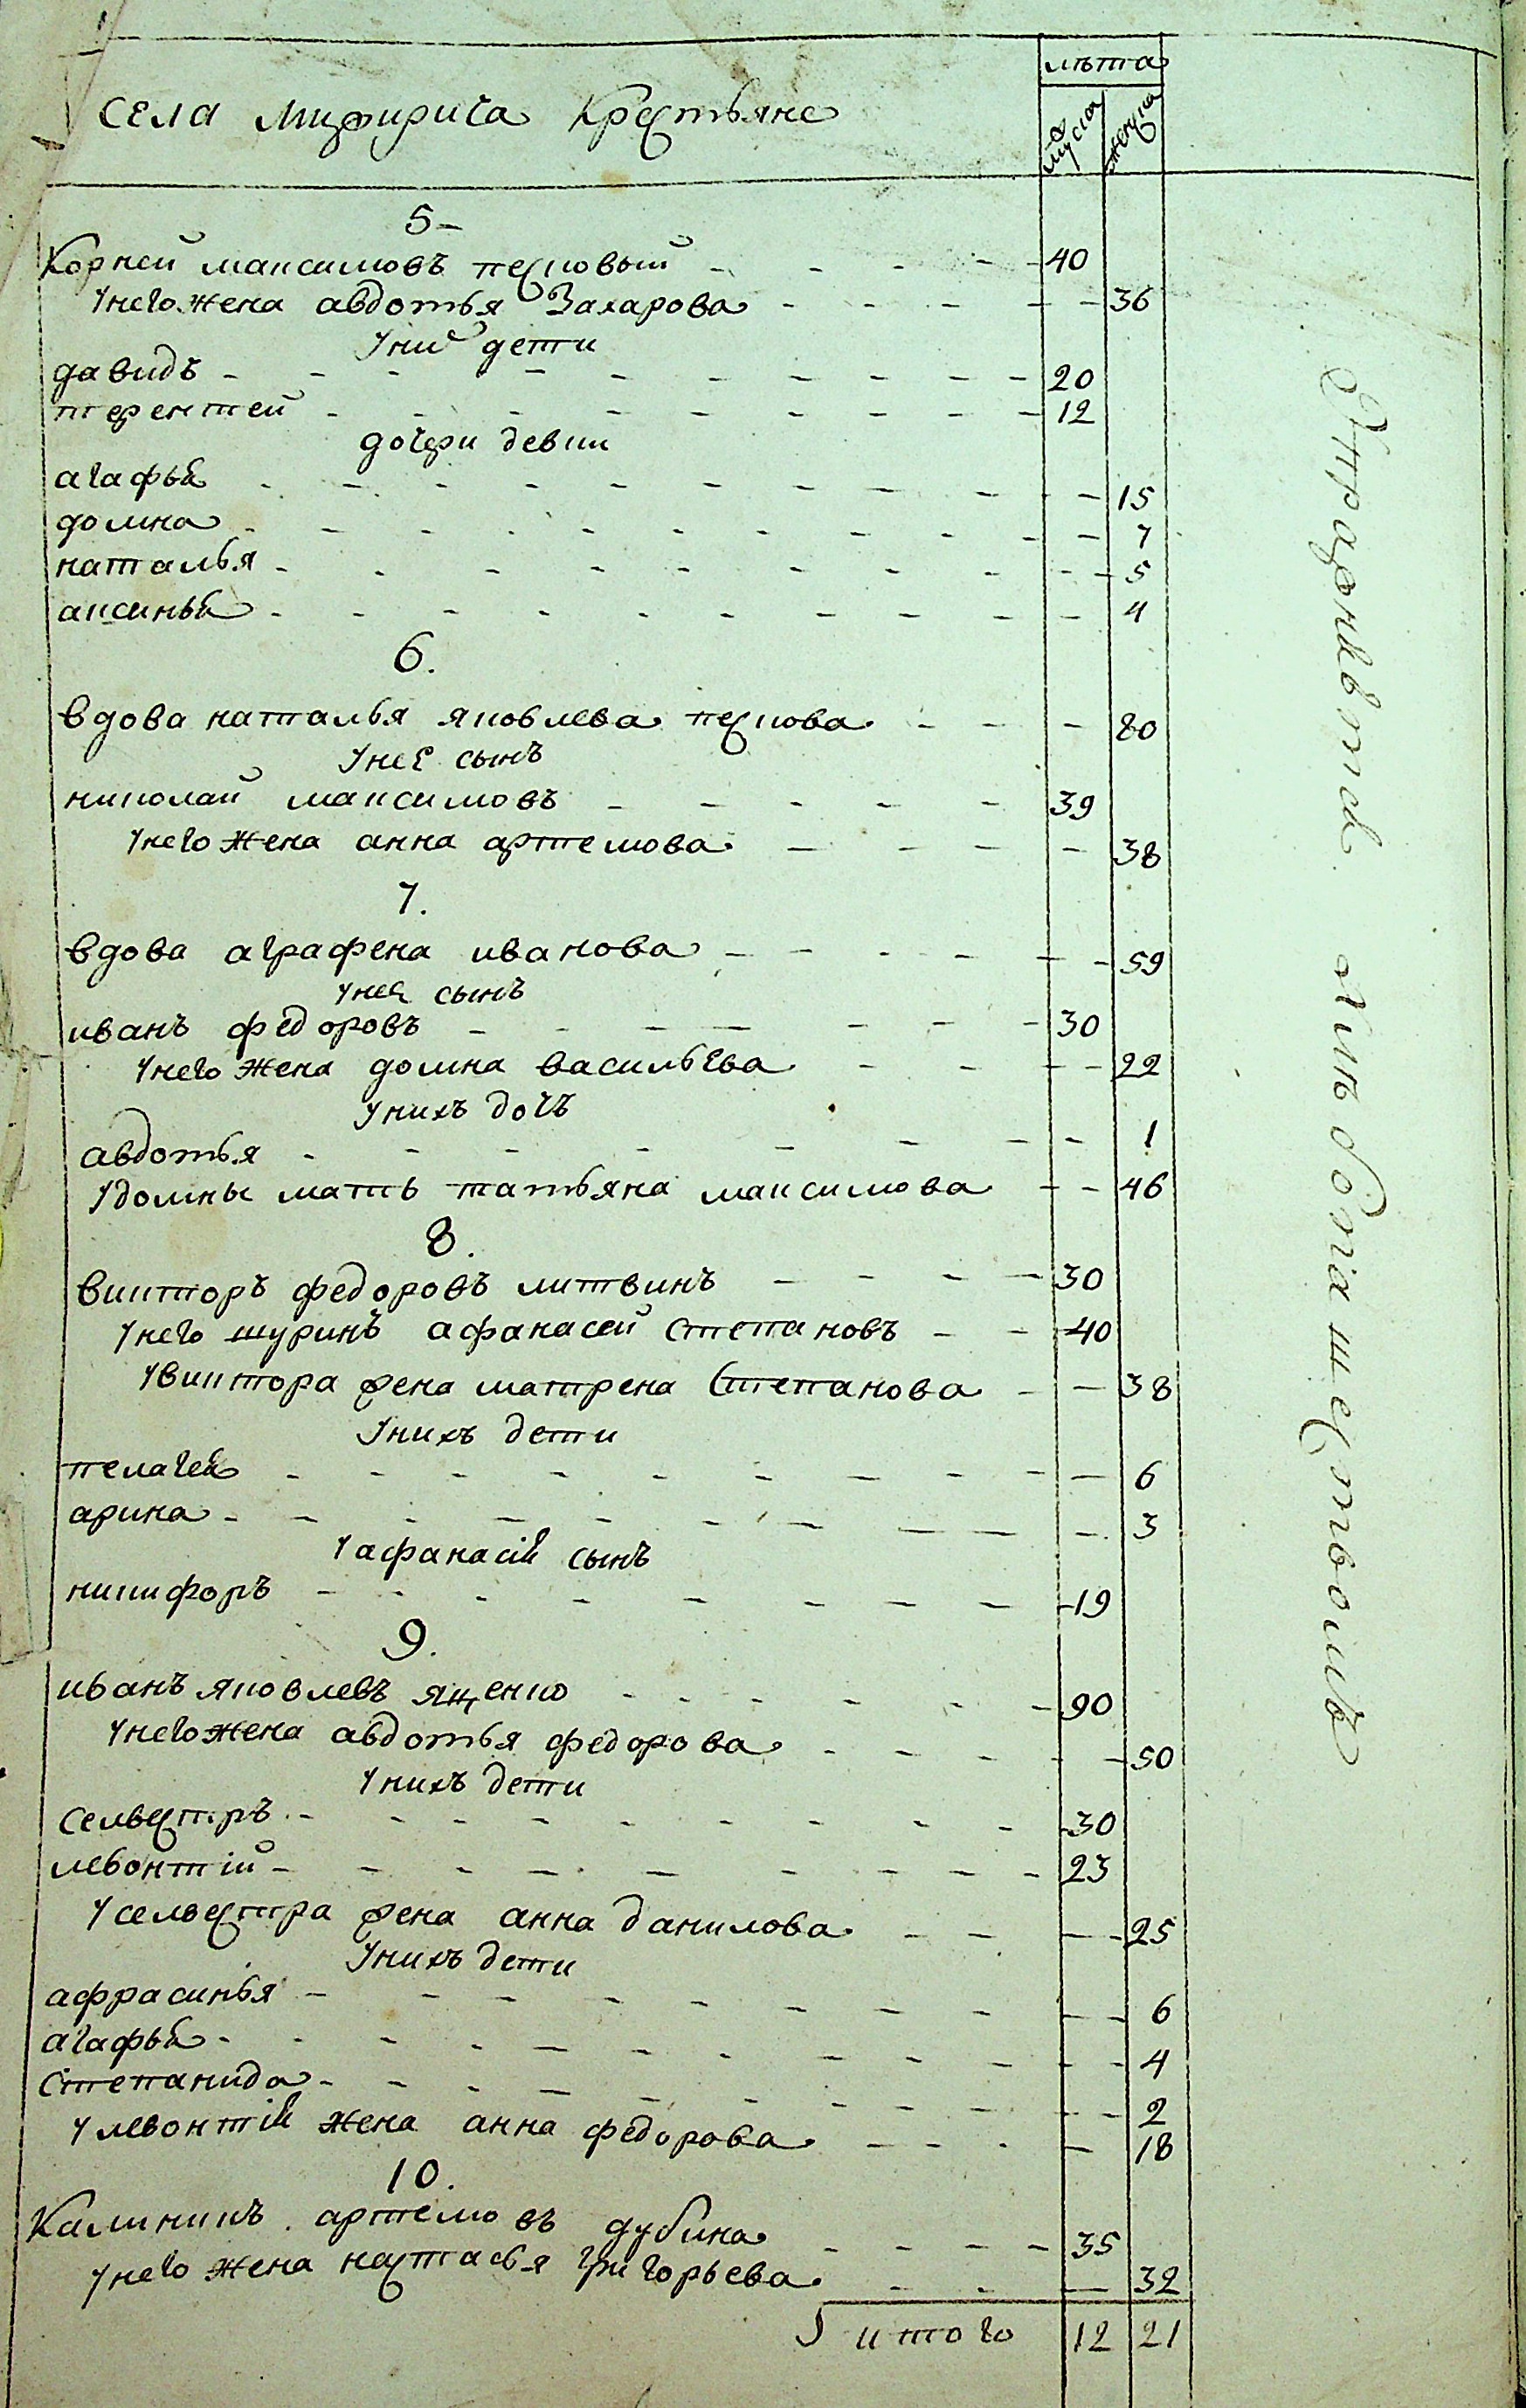 лѣта
села Мифирича крестьяне
муска
женска
5-
Корней максимовъ песковый - - - - 40
Унего жена авдотья Захарова - - - - - 36
Уних дети
давидъ - - - - - - - - - - 20
терентей - - - - - - - - - 12
дочери девки
агафья - - - - - - - - - - - 15
домна - - - - - - - - - - - 7
наталья - - - - - - - - - - 5
аксинья - - - - - - - - - - 4
6.
вдова наталья яковлева пескова - - - 80
Унее сынъ
николай максимовъ - - - - - 39
Унего жена анна артемова - - - - 38
7.
вдова аграфена иванова - - - - - - 59
Унея сынъ
иванъ федоровъ - - - - - - - 30
Унего жена домна васильева - - - - 22
Унихъ дочъ
авдотья - - - - - - - - 1
Удомны мать татьяна максимова - - 46
8.
викторъ федоровъ литвинъ - - - - 30
Унего шуринъ афанасей степановъ - - 40
Увиктора жена матрена Степанова - - 38
Унихъ дети
пелагея - - - - - - - - - - - 6
арина - - - - - - - - - - - 3
Уафанасія сынъ
никифоръ - - - - - - - - - 19
9.
иванъ яковлевъ ященко - - - - - - 90
Унего жена авдотья федорова - - - - - 50
Унихъ дети
селвестръ - - - - - - - - - - 30
левонтій - - - - - - - - - 23
Уселвестра жена анна данилова - - - - 25
Унихъ дети
афрасинья - - - - - - - - - - 6
агафья - - - - - - - - - - - 4
степанида - - - - - - - - - - - 2
Улевонтія жена анна федорова - - - - 18
10.
Калиникъ артемовъ дубина - - - - 35
Унего жена настасья григорьева - - - 32
итого 12 21